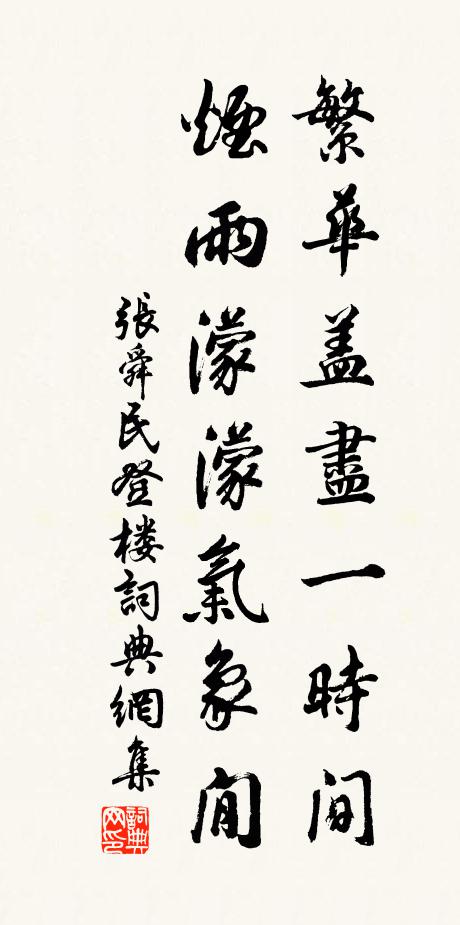 繁華盖盡一時間
煙雨濛濛氣象閒
張舜民登楼詞典網集
詞典网印